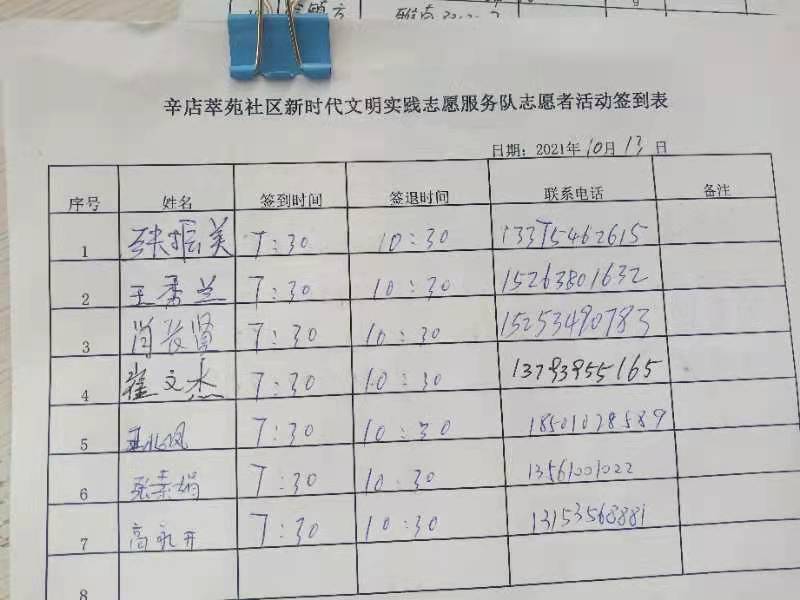 辛店萃苑社区新时代文明实践志愿服务队志愿者活动签到表
日期：2021年10月13日
序号 姓名 签到时间 签退时间 联系电话 备注
1 张振美 7:30 10:30 13375462615
2 王秀兰 7:30 10:30 15263801632
3 肖长贤 7:30 10:30 15253490783
4 崔文杰 7:30 10:30 13793955165
5 7:30 10:30 18501028589
6 张素娟 7:30 10:30 13561001022
7 高永开 7:30 10:30 13153568881
8